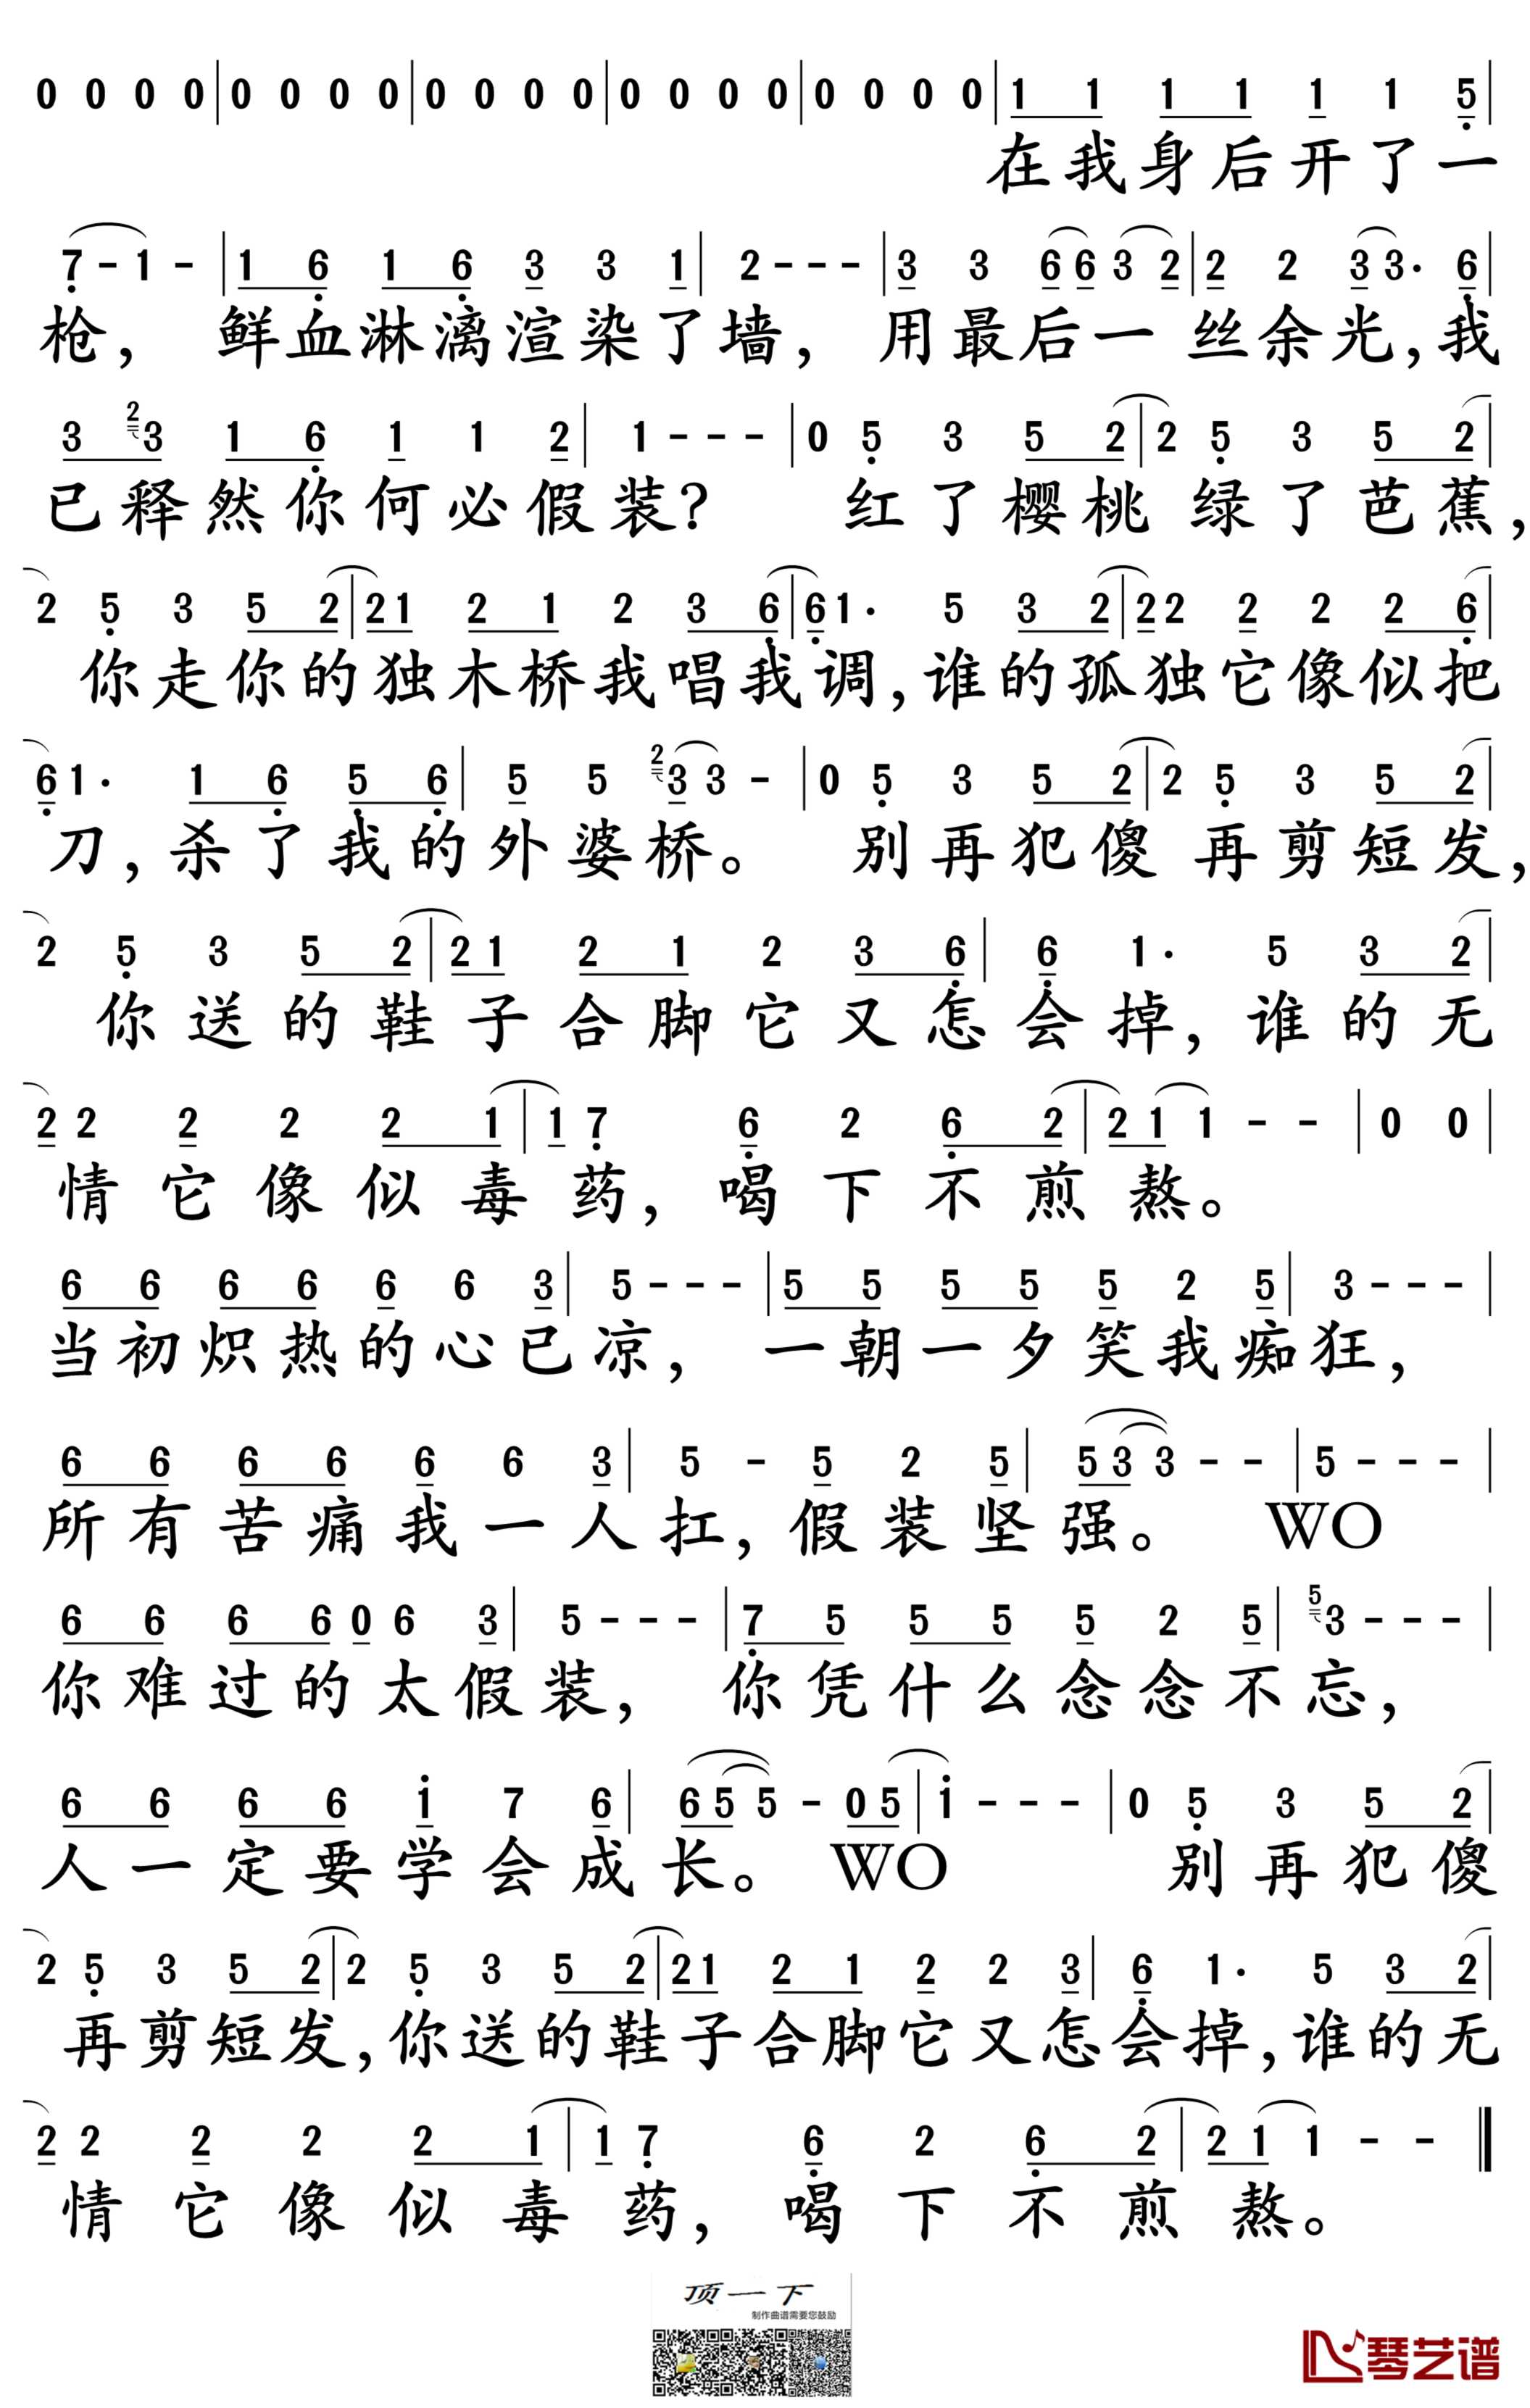 0 0 0 0 | 0 0 0 0 | 0 0 0 0 | 0 0 0 0 | 0 0 0 0 | 1 1 1 1 1 1 5 |
在我身后开了一
7 - 1 - | 1 6 1 6 3 3 1 | 2 - - - | 3 3 6 6 3 2 | 2 2 3 3 . 6 |
枪， 鲜血淋漓渲染了墙， 用最后一 丝余光，我
3 2 3 1 6 1 1 2 | 1 - - - | 0 5 3 5 2 | 2 5 3 5 2 |
已释然你何必假装？ 红了樱桃 绿了芭蕉，
2 5 3 5 2 | 2 1 2 1 2 3 6 | 6 1 . 5 3 2 | 2 2 2 2 2 6 |
你走你的独木桥我唱我调，谁的孤独它像似把
6 1 . 1 6 5 6 | 5 5 2 3 3 - | 0 5 3 5 2 | 2 5 3 5 2 |
刀，杀了我的外婆桥。 别再犯傻 再剪短发，
2 5 3 5 2 | 2 1 2 1 2 3 6 | 6 1 . 5 3 2 |
你送的鞋子合脚它又怎会掉，谁的无
2 2 2 2 2 1 | 1 7 6 2 6 2 | 2 1 1 - - | 0 0 |
情它像似毒药，喝下不煎熬。
6 6 6 6 6 6 3 | 5 - - - | 5 5 5 5 5 2 5 | 3 - - - |
当初炽热的心已凉， 一朝一夕笑我痴狂，
6 6 6 6 6 6 3 | 5 - 5 2 5 | 5 3 3 - - | 5 - - - |
所有苦痛我一人扛，假装坚强。 WO
6 6 6 6 0 6 3 | 5 - - - | 7 5 5 5 5 2 5 | 5 3 - - - |
你难过的太假装， 你凭什么念念不忘，
6 6 6 6 1 7 6 | 6 5 5 - 0 5 | 1 - - - | 0 5 3 5 2 |
人一定要学会成长。 WO 别再犯傻
2 5 3 5 2 | 2 5 3 5 2 | 2 1 2 1 2 2 3 | 6 1 . 5 3 2 |
再剪短发，你送的鞋子合脚它又怎会掉，谁的无
2 2 2 2 2 1 | 1 7 6 2 6 2 | 2 1 1 - - ‖
情它像似毒药，喝下不煎熬。
顶一下
制作曲谱需要您鼓励
琴艺谱